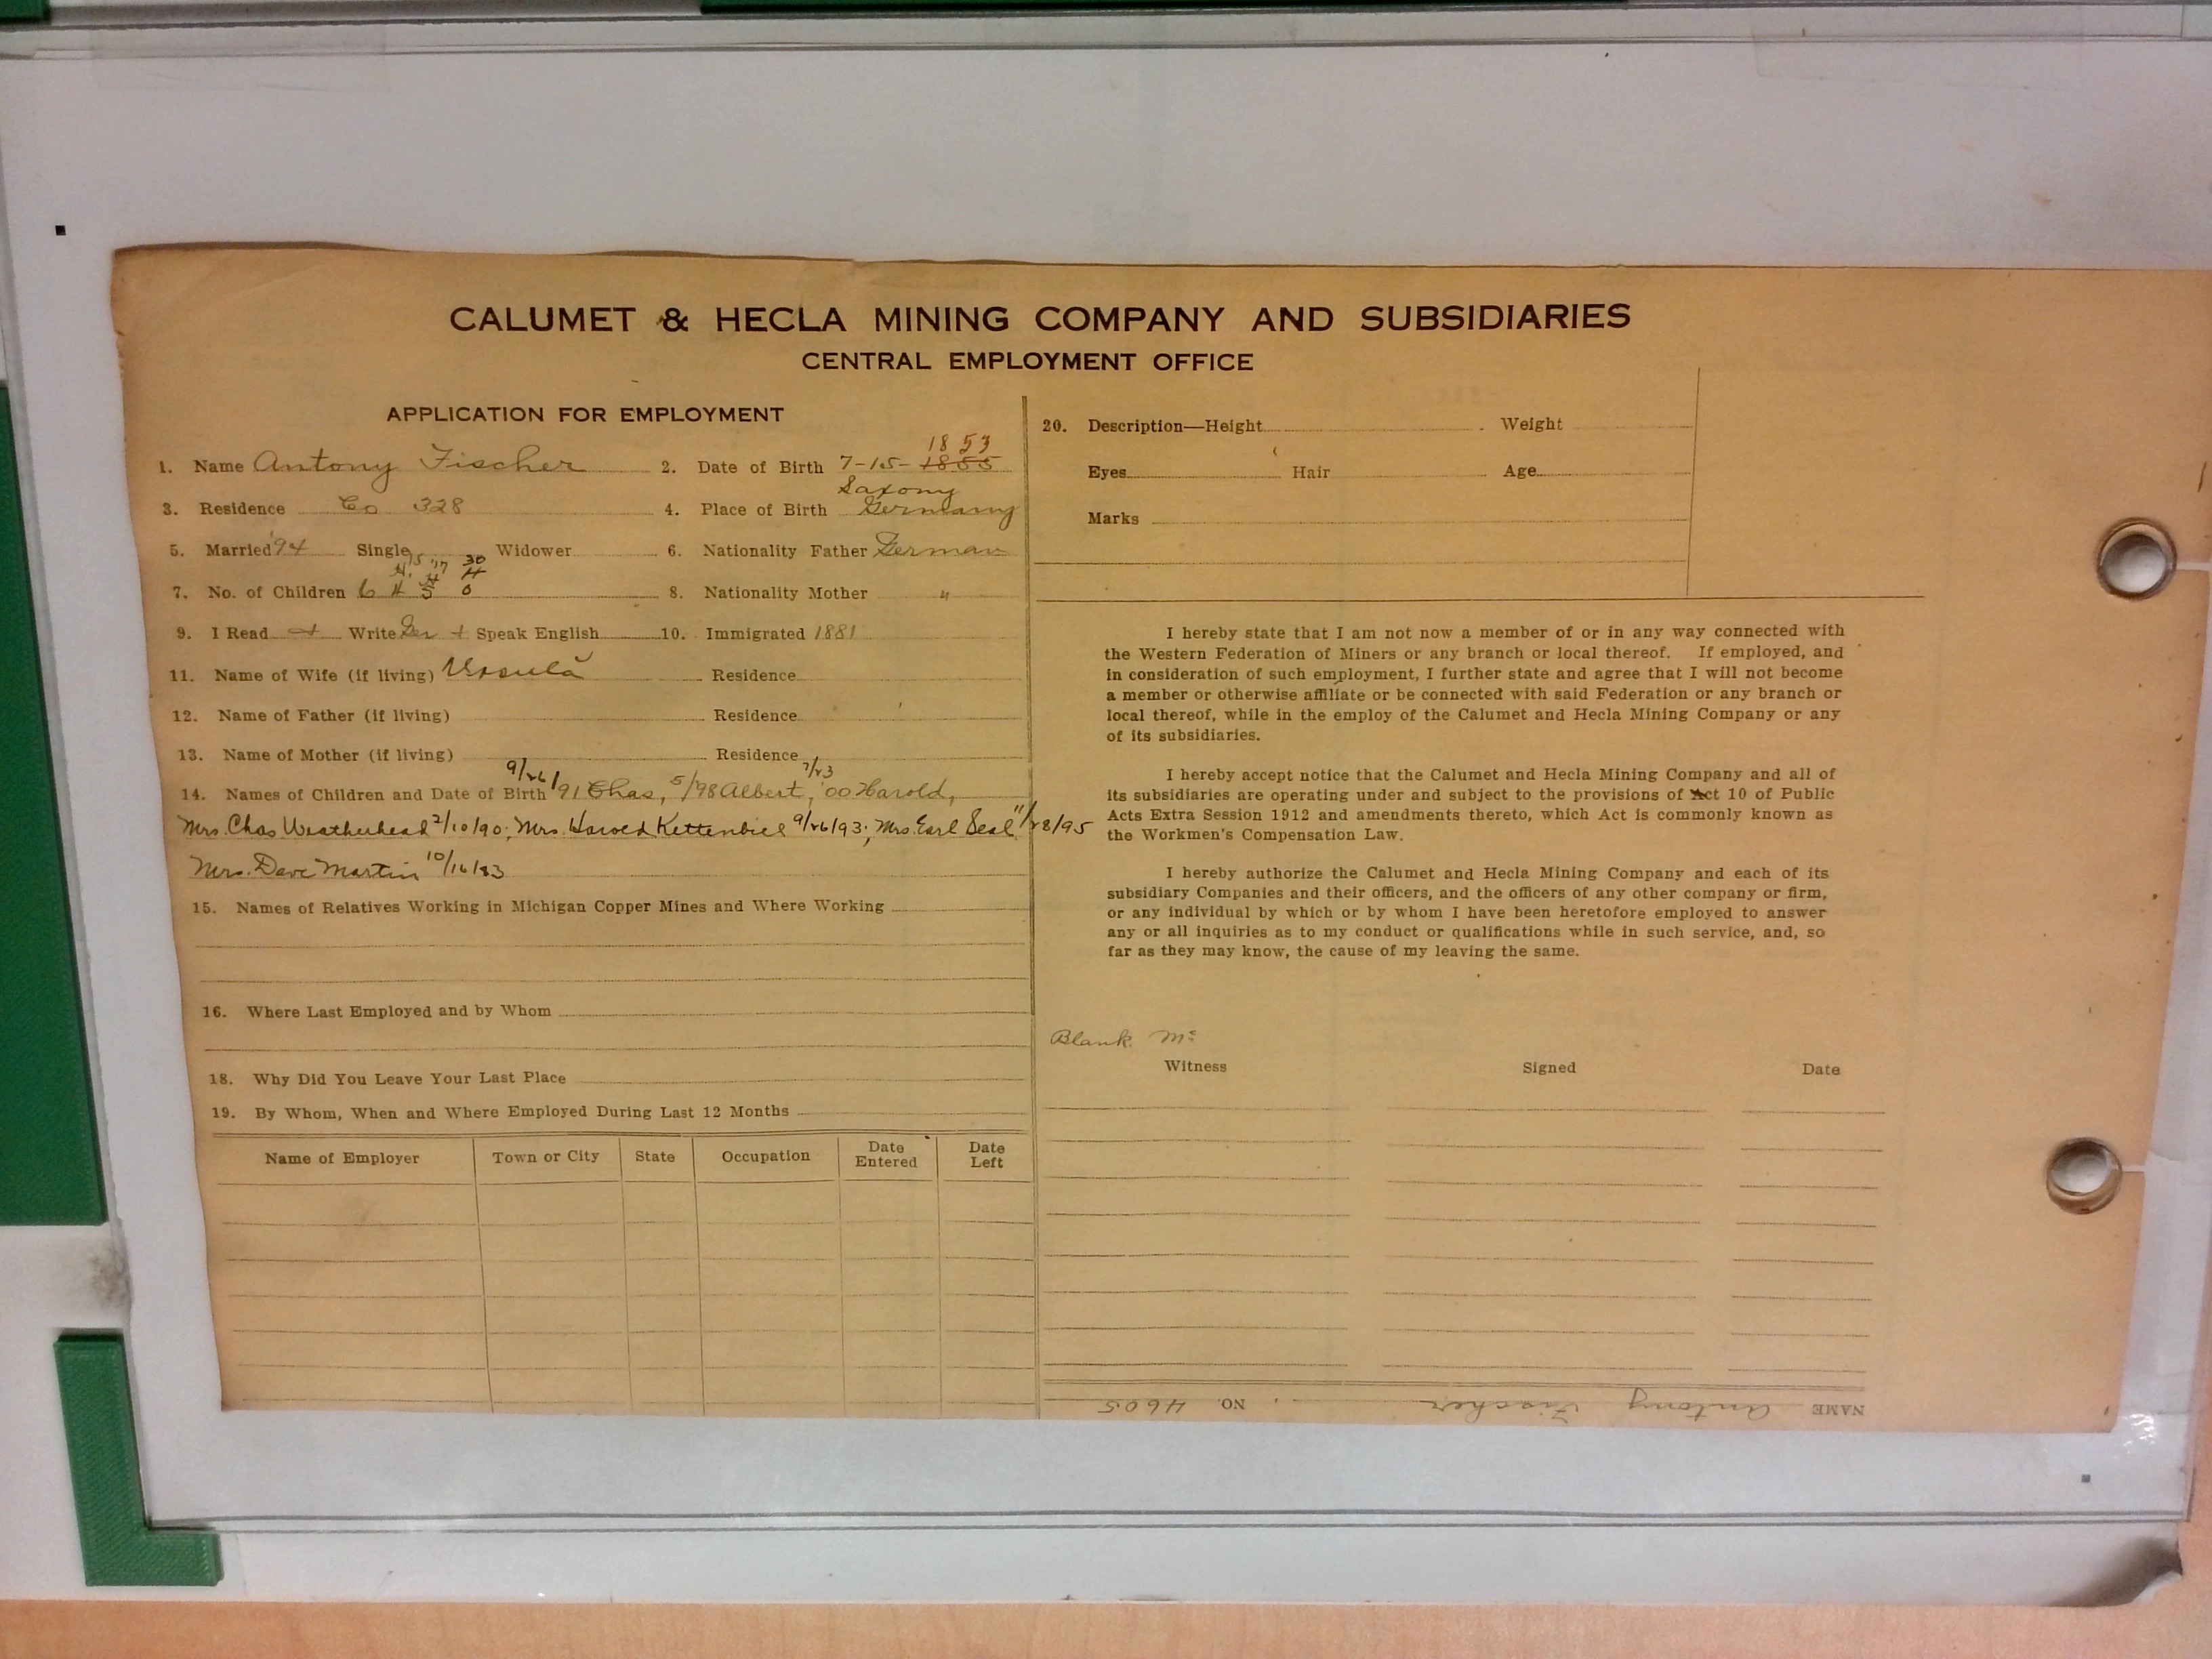 CALUMET & HECLA MINING COMPANY AND SUBSIDIARIES
CENTRAL EMPLOYMENT OFFICE
APPLICATION FOR EMPLOYMENT
1. Name Antony Fischer 2. Date of Birth 7-15-1855 1853
3. Residence Co 328 4. Place of Birth Saxony Germany
5. Married '94 Single Widower 6. Nationality Father German
7. No. of Children 6 8. Nationality Mother "
9. I Read + Write Ger + Speak English 10. Immigrated 1881
11. Name of Wife (if living) Ursula Residence
12. Name of Father (if living) Residence
13. Name of Mother (if living) Residence
14. Names of Children and Date of Birth 9/26/91 Chas, 5/98 Albert, 7/23 '00 Harold,
Mrs. Chas Weatherhead 2/10/90; Mrs. Harold Kettenbiel 9/26/93; Mrs. Earl Seal 11/28/95
Mrs. Dave Martin 10/16/83
15. Names of Relatives Working in Michigan Copper Mines and Where Working
16. Where Last Employed and by Whom
18. Why Did You Leave Your Last Place
19. By Whom, When and Where Employed During Last 12 Months
Name of Employer Town or City State Occupation Date Entered Date Left
20. Description—Height Weight
Eyes Hair Age
Marks
I hereby state that I am not now a member of or in any way connected with
the Western Federation of Miners or any branch or local thereof. If employed, and
in consideration of such employment, I further state and agree that I will not become
a member or otherwise affiliate or be connected with said Federation or any branch or
local thereof, while in the employ of the Calumet and Hecla Mining Company or any
of its subsidiaries.
I hereby accept notice that the Calumet and Hecla Mining Company and all of
its subsidiaries are operating under and subject to the provisions of Act 10 of Public
Acts Extra Session 1912 and amendments thereto, which Act is commonly known as
the Workmen's Compensation Law.
I hereby authorize the Calumet and Hecla Mining Company and each of its
subsidiary Companies and their officers, and the officers of any other company or firm,
or any individual by which or by whom I have been heretofore employed to answer
any or all inquiries as to my conduct or qualifications while in such service, and, so
far as they may know, the cause of my leaving the same.
Blank
Witness Signed Date
NAME Antony Fischer NO. 4605